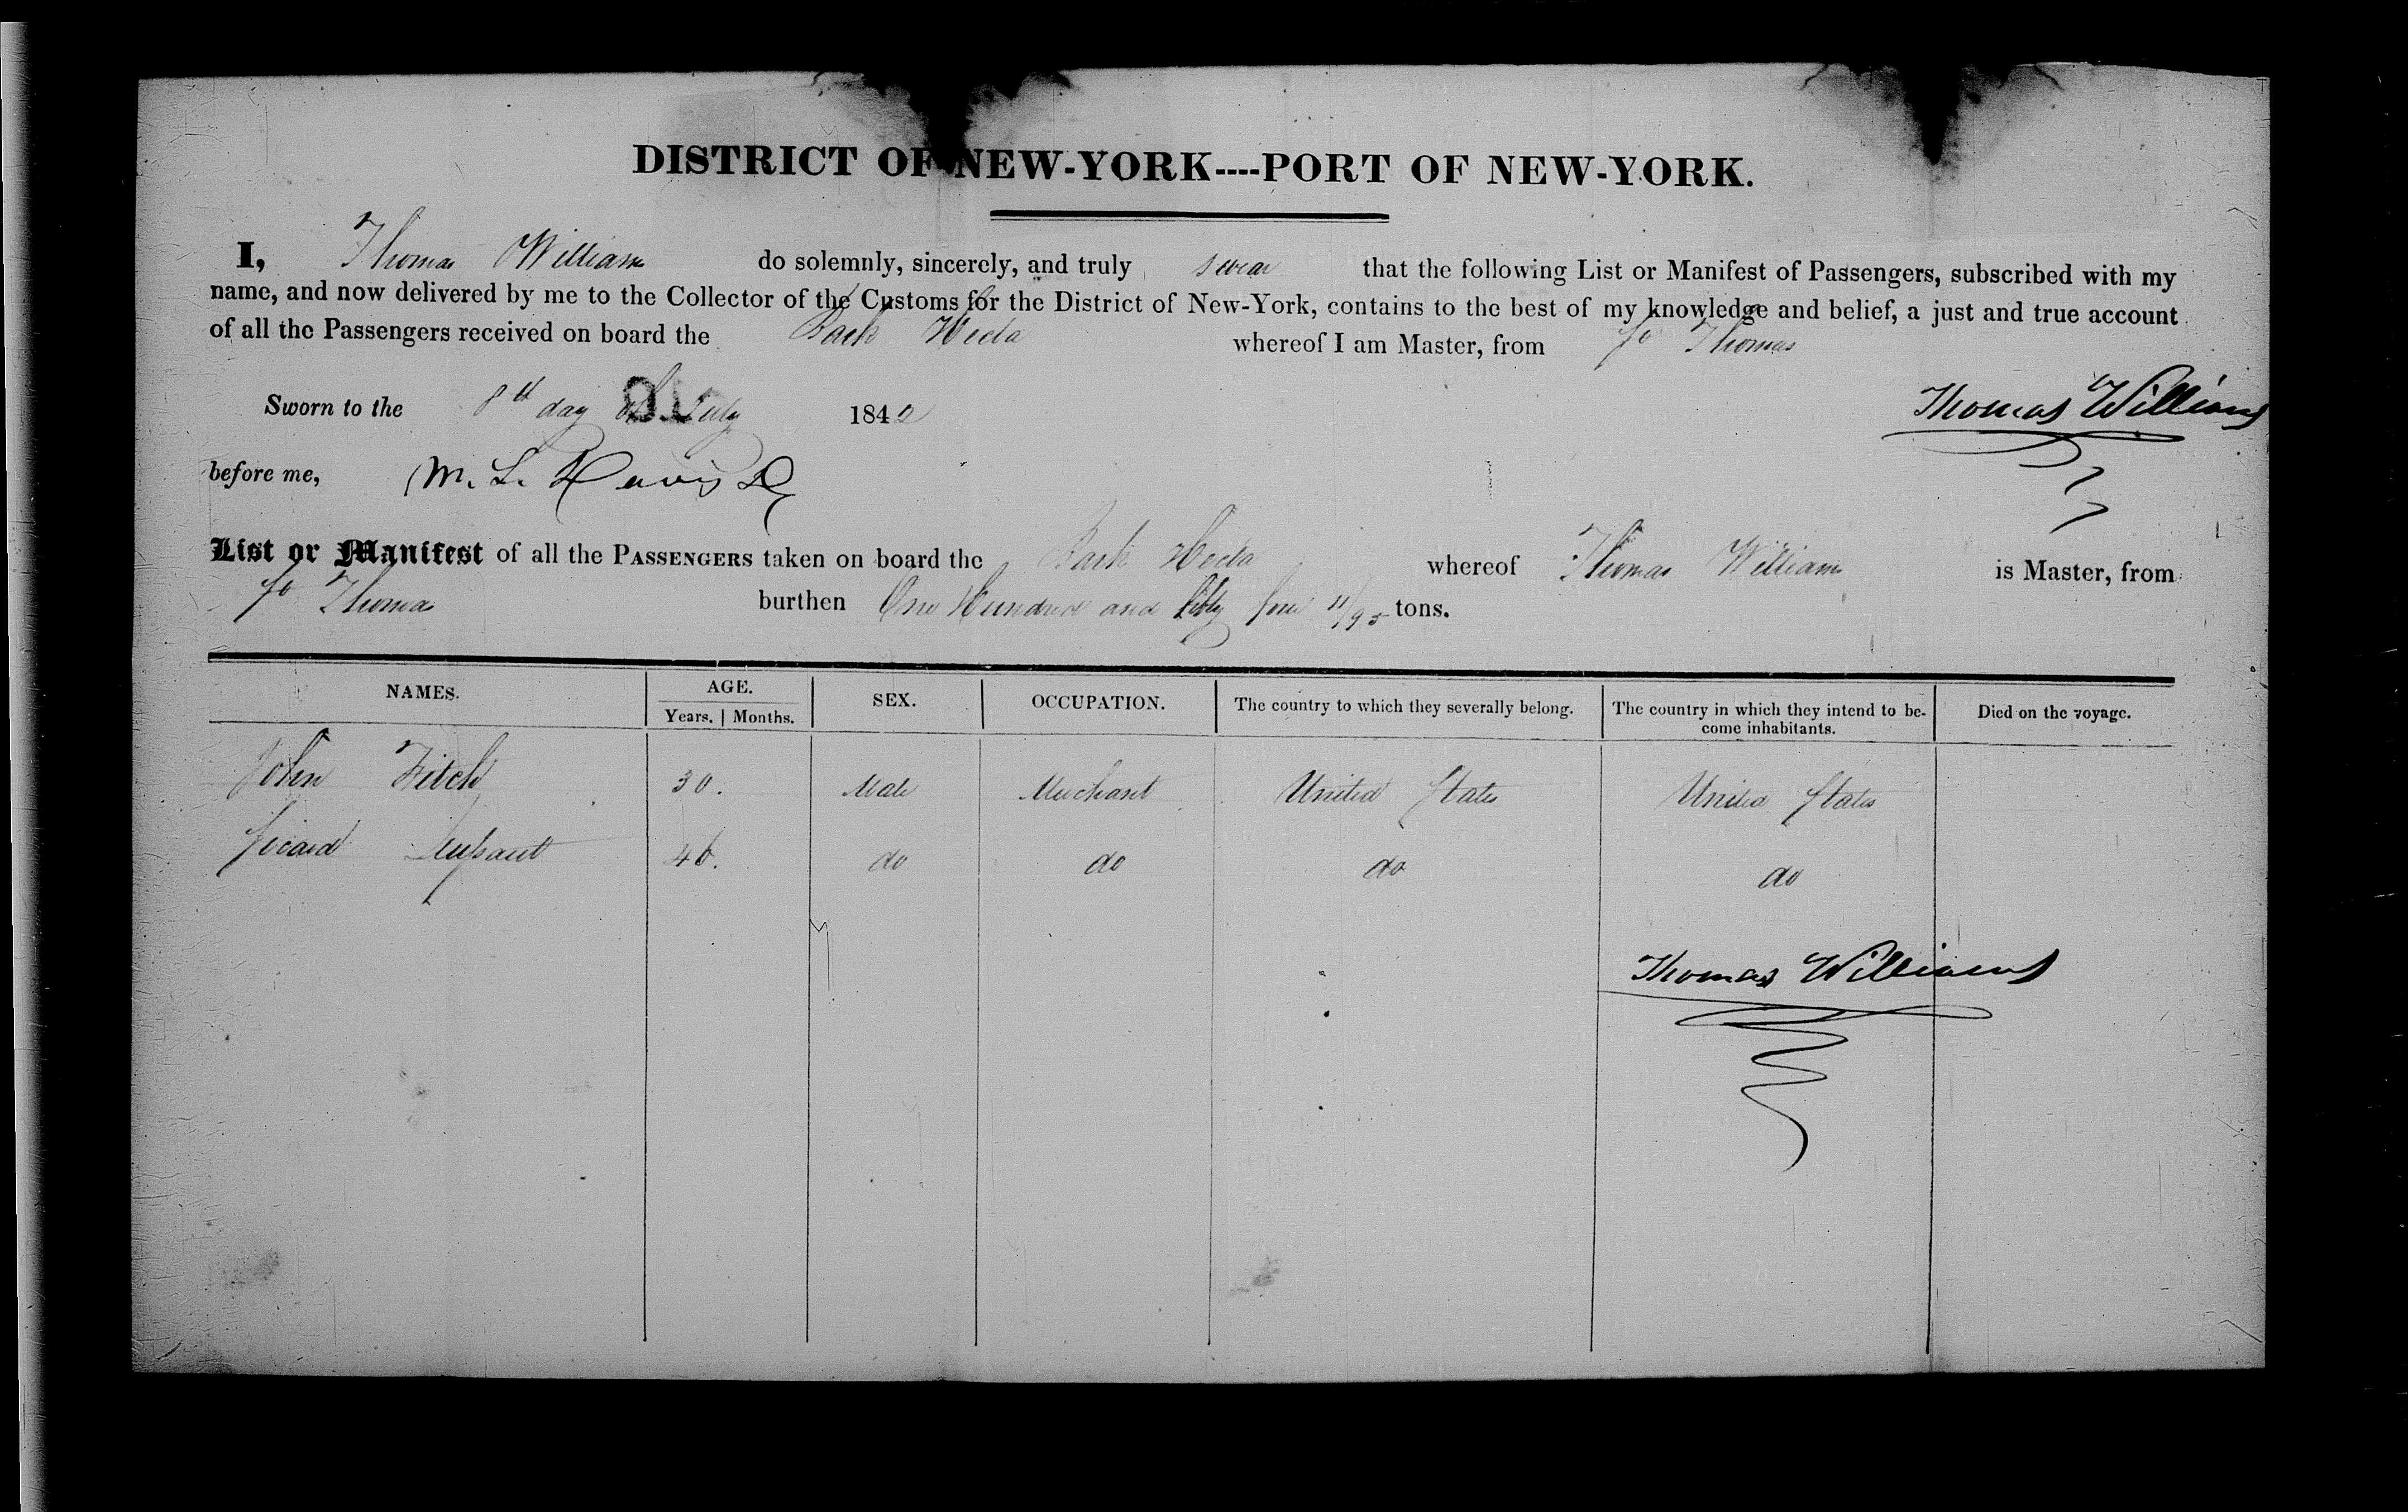 DISTRICT OF NEW-YORK----PORT OF NEW-YORK.
I, Thomas Williams do solemnly, sincerely, and truly swear that the following List or Manifest of Passengers, subscribed with my
name, and now delivered by me to the Collector of the Customs for the District of New-York, contains to the best of my knowledge and belief, a just and true account
of all the Passengers received on board the Bark Hecla whereof I am Master, from St Thomas
Sworn to the 8th day of July 1842 Thomas Williams
before me, M. L. Davis
List or Manifest of all the PASSENGERS taken on board the Bark Hecla whereof Thomas Williams is Master, from
St Thomas burthen One Hundred and fifty four 11/95 tons.
NAMES. AGE. SEX. OCCUPATION. The country to which they severally belong. The country in which they intend to be- Died on the voyage.
Years. | Months. come inhabitants.
John Fitch 30. Male Merchant United States United States
46. do do do do
Thomas Williams